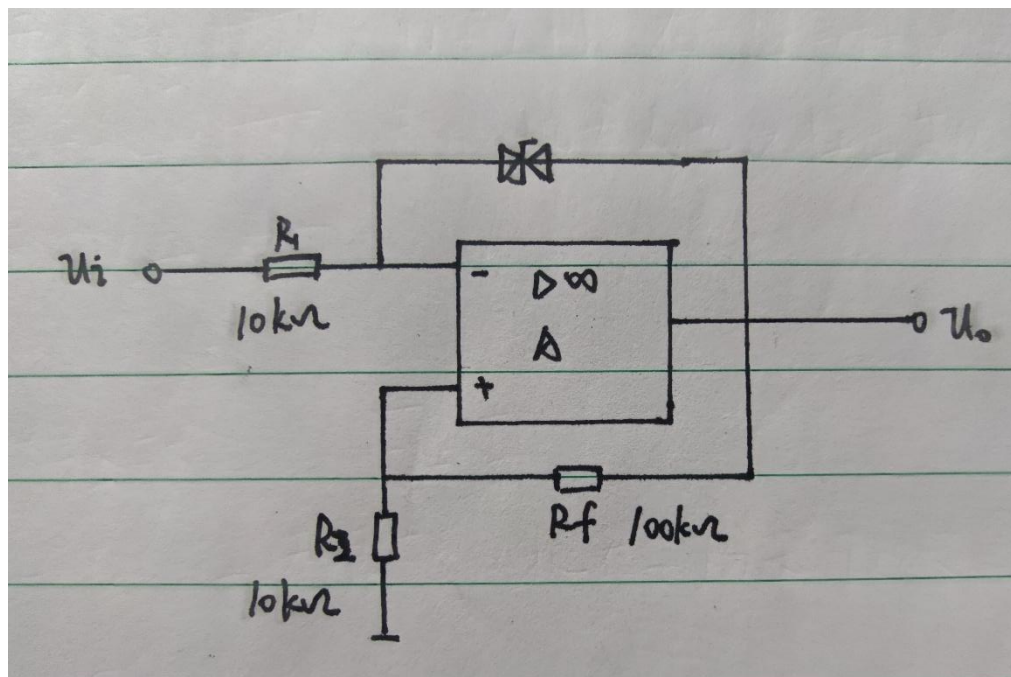 R1
ui
10kΩ
- ▷∞
+
uo
Rf 100kΩ
R2
10kΩ